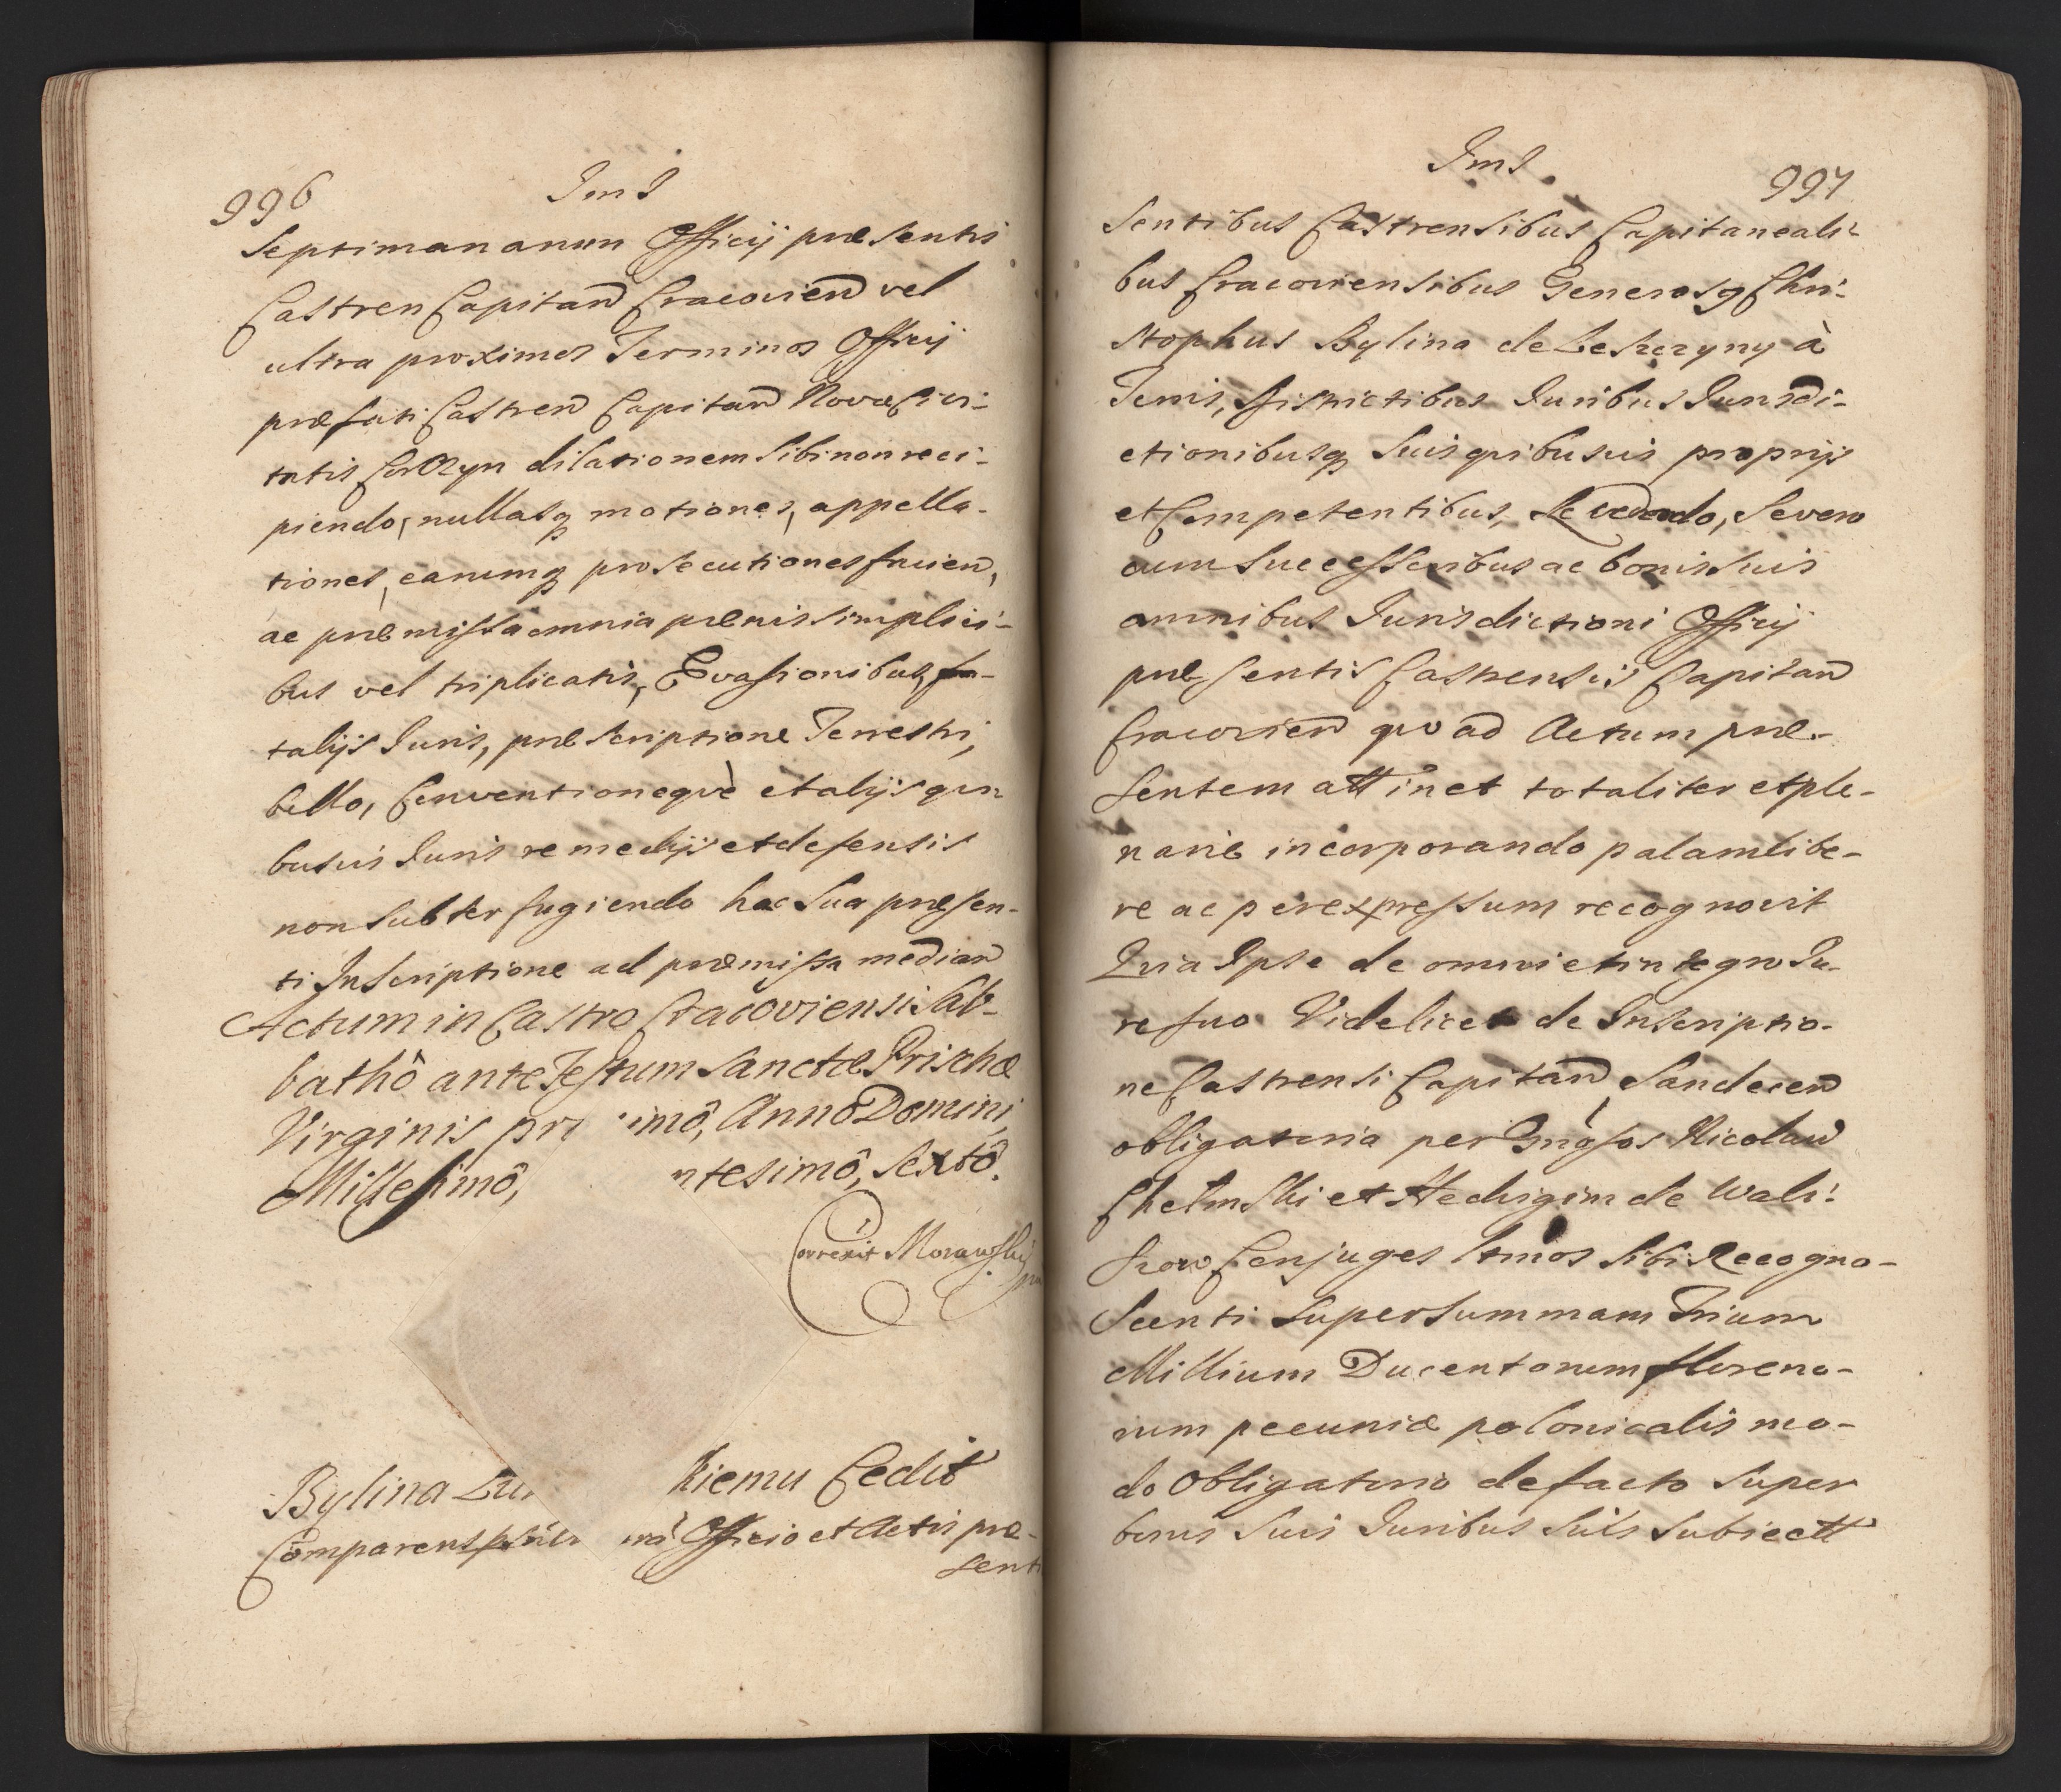 996
Septimananum Officij præsentis
Castren Capitan Cracovien vel
ultra proximos Terminos Officij
præfati Castren Capitan Novæ Civi-
tatis Corczyn dilationem sibi non reci-
piendo, nullasq motiones, appella-
tiones, earumq prosecutiones facien,
ac præmissa omnia pænis simplici-
bus vel triplicatis, Evasionibus, fa-
talijs Juris, præscriptione Terrestri,
bello, Conventioneqvè et alijs qui-
busvis Juris remedijs et defensis
non subterfugiendo hac sua præsen-
ti Inscriptione ad præmissa median
Actum in Castro Cracoviensi Sab-
bathô ante Festum Sanctæ Priscæ
Virginis imô, Annô Domini
Millesimô, ntesimô, Sextô.
Correxit Morawski
Bylina kiemu Cedit
Comparens Officio et Actis præ-
senti
997
sentibus Castrensibus Capitaneali-
bus Cracoviensibus Generosq Chri-
stophus Bylina de Leszczyny à
Terris, Districtibus Juribus Jurisdi-
ctionibusq suis quibusvis proprijs
et Competentibus, recedendo, Se vero
cum Successoribus ac bonis suis
omnibus Jurisdictioni Officij
præsentis Castrensis Capitan
Cracovien quo ad Actum præ-
sentem attinet totaliter et ple-
nariè incorporando palam libe-
re ac per expressum recognovit
Quia Ipse de omni et integro Ju-
re suo Videlicet de Inscriptio-
ne Castrensi Capitan, Sandecen
obligatoria per Gnôsos Nicolaũ
Chelmski et Hedvigim de Wali-
szow Conjuges Itmos sibi Recogno-
scenti super summam Trium
Millium Ducentorum floreno-
rum pecuniæ polonicalis mo-
do Obligatorio de facto super
bonis suis Juribus suis subiectt